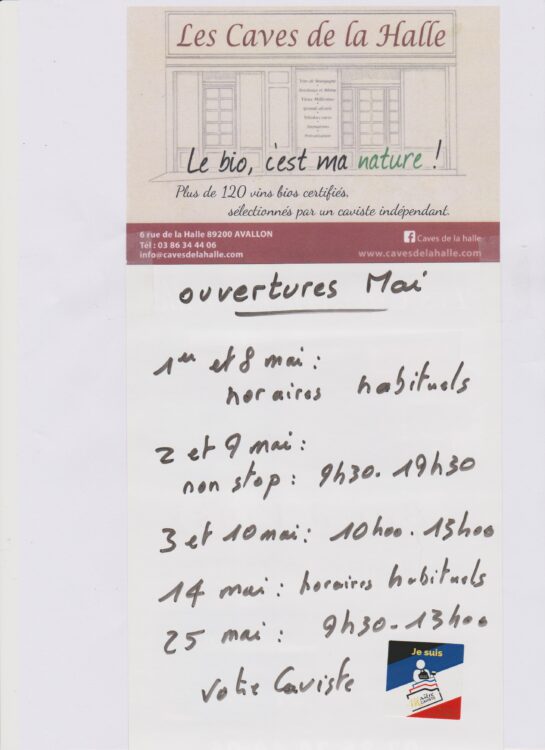 Les Caves de la Halle
Vins de Bourgogne
Bordeaux et Rhône
Vieux Millésimes
Grands alcools
Le bio, c'est ma nature !
Plus de 120 vins bios certifiés,
sélectionnés par un caviste indépendant.
6 rue de la Halle 89200 AVALLON
Tél : 03 86 34 44 06
info@cavesdelahalle.com
Caves de la halle
www.cavesdelahalle.com
ouvertures Mai
1er et 8 mai :
horaires habituels
2 et 9 mai :
non stop : 9h30 - 19h30
3 et 10 mai : 10h00 - 13h00
14 mai : horaires habituels
25 mai : 9h30 - 13h00
votre Caviste
Je suis